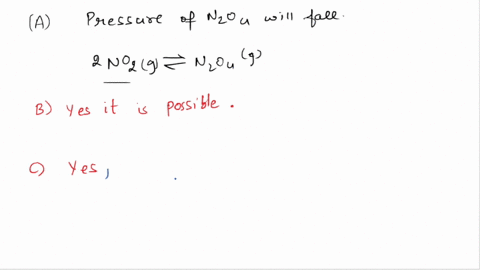 (A) Pressure of N2O4 will fall.
2NO2(g) ⇌ N2O4(g)
B) Yes it is possible.
C) Yes,